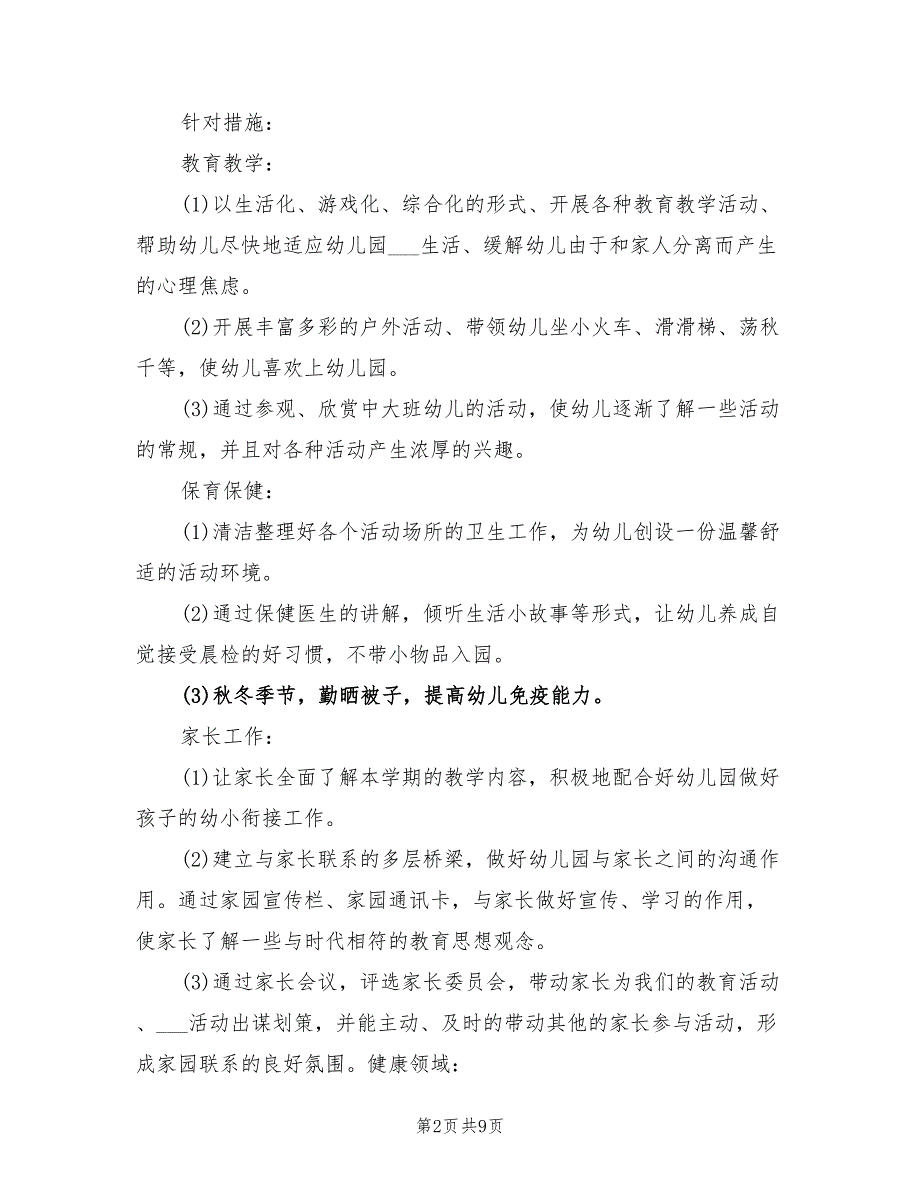 针对措施：
教育教学：
(1)以生活化、游戏化、综合化的形式、开展各种教育教学活动、
帮助幼儿尽快地适应幼儿园___生活、缓解幼儿由于和家人分离而产生
的心理焦虑。
(2)开展丰富多彩的户外活动、带领幼儿坐小火车、滑滑梯、荡秋
千等，使幼儿喜欢上幼儿园。
(3)通过参观、欣赏中大班幼儿的活动，使幼儿逐渐了解一些活动
的常规，并且对各种活动产生浓厚的兴趣。
保育保健：
(1)清洁整理好各个活动场所的卫生工作，为幼儿创设一份温馨舒
适的活动环境。
(2)通过保健医生的讲解，倾听生活小故事等形式，让幼儿养成自
觉接受晨检的好习惯，不带小物品入园。
(3)秋冬季节，勤晒被子，提高幼儿免疫能力。
家长工作：
(1)让家长全面了解本学期的教学内容，积极地配合好幼儿园做好
孩子的幼小衔接工作。
(2)建立与家长联系的多层桥梁，做好幼儿园与家长之间的沟通作
用。通过家园宣传栏、家园通讯卡，与家长做好宣传、学习的作用，
使家长了解一些与时代相符的教育思想观念。
(3)通过家长会议，评选家长委员会，带动家长为我们的教育活动
、___活动出谋划策，并能主动、及时的带动其他的家长参与活动，形
成家园联系的良好氛围。健康领域：
第2页共9页